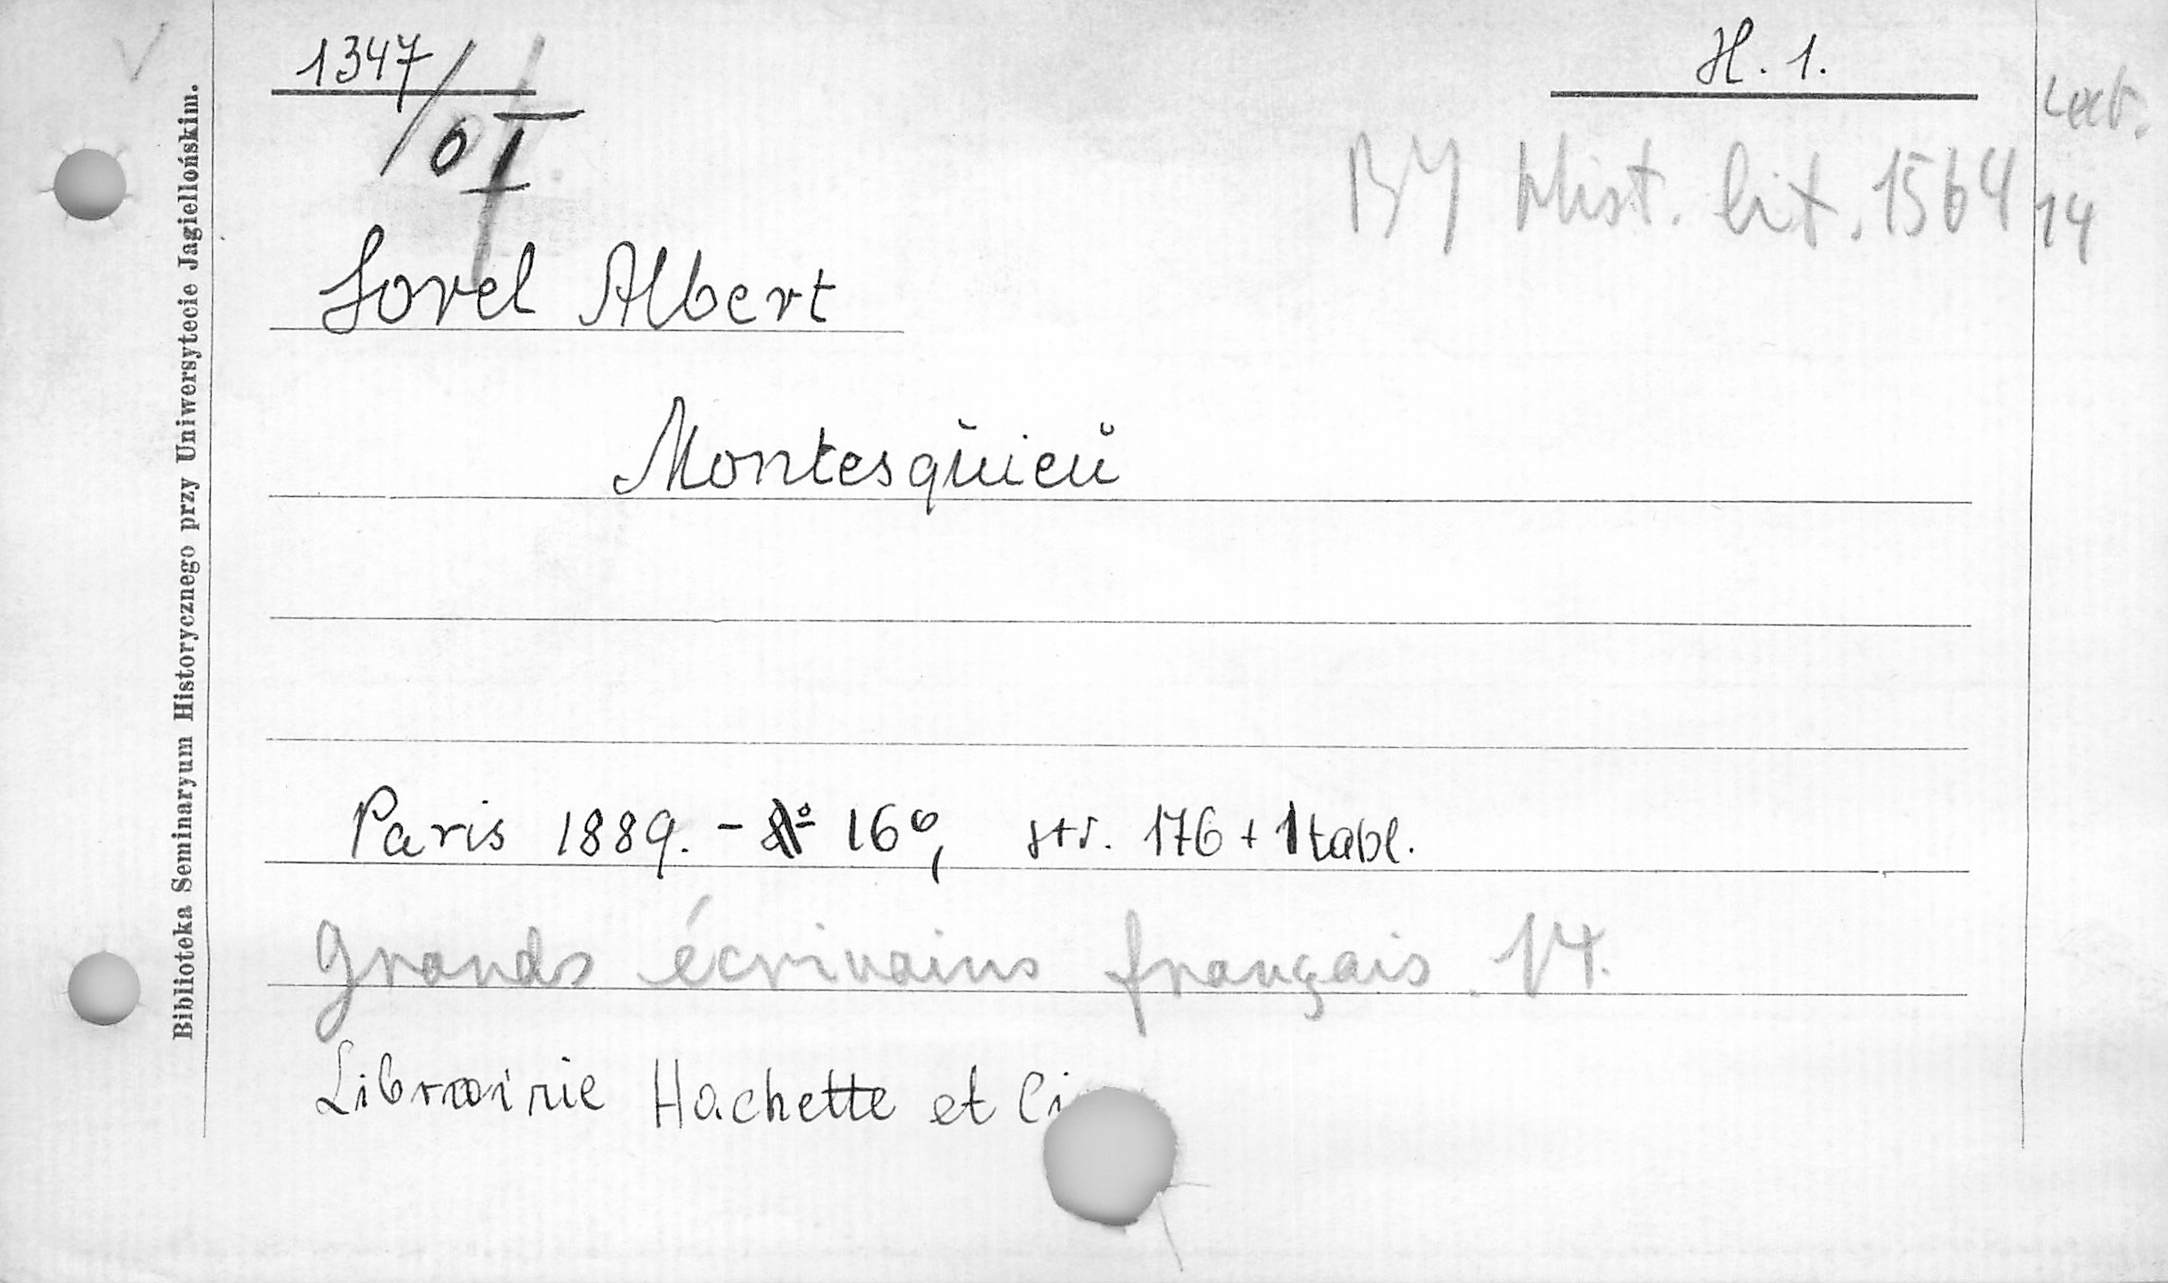 1347 / o I
H. 1.
BJ Hist. lit. 1564
14
Sorel Albert
Montesquieu
Paris 1889. - 16º, str. 176 + 1 tabl.
Grands écrivains français. 14.
Librairie Hachette et Ci
Biblioteka Seminaryum Historycznego przy Uniwersytecie Jagiellońskim.